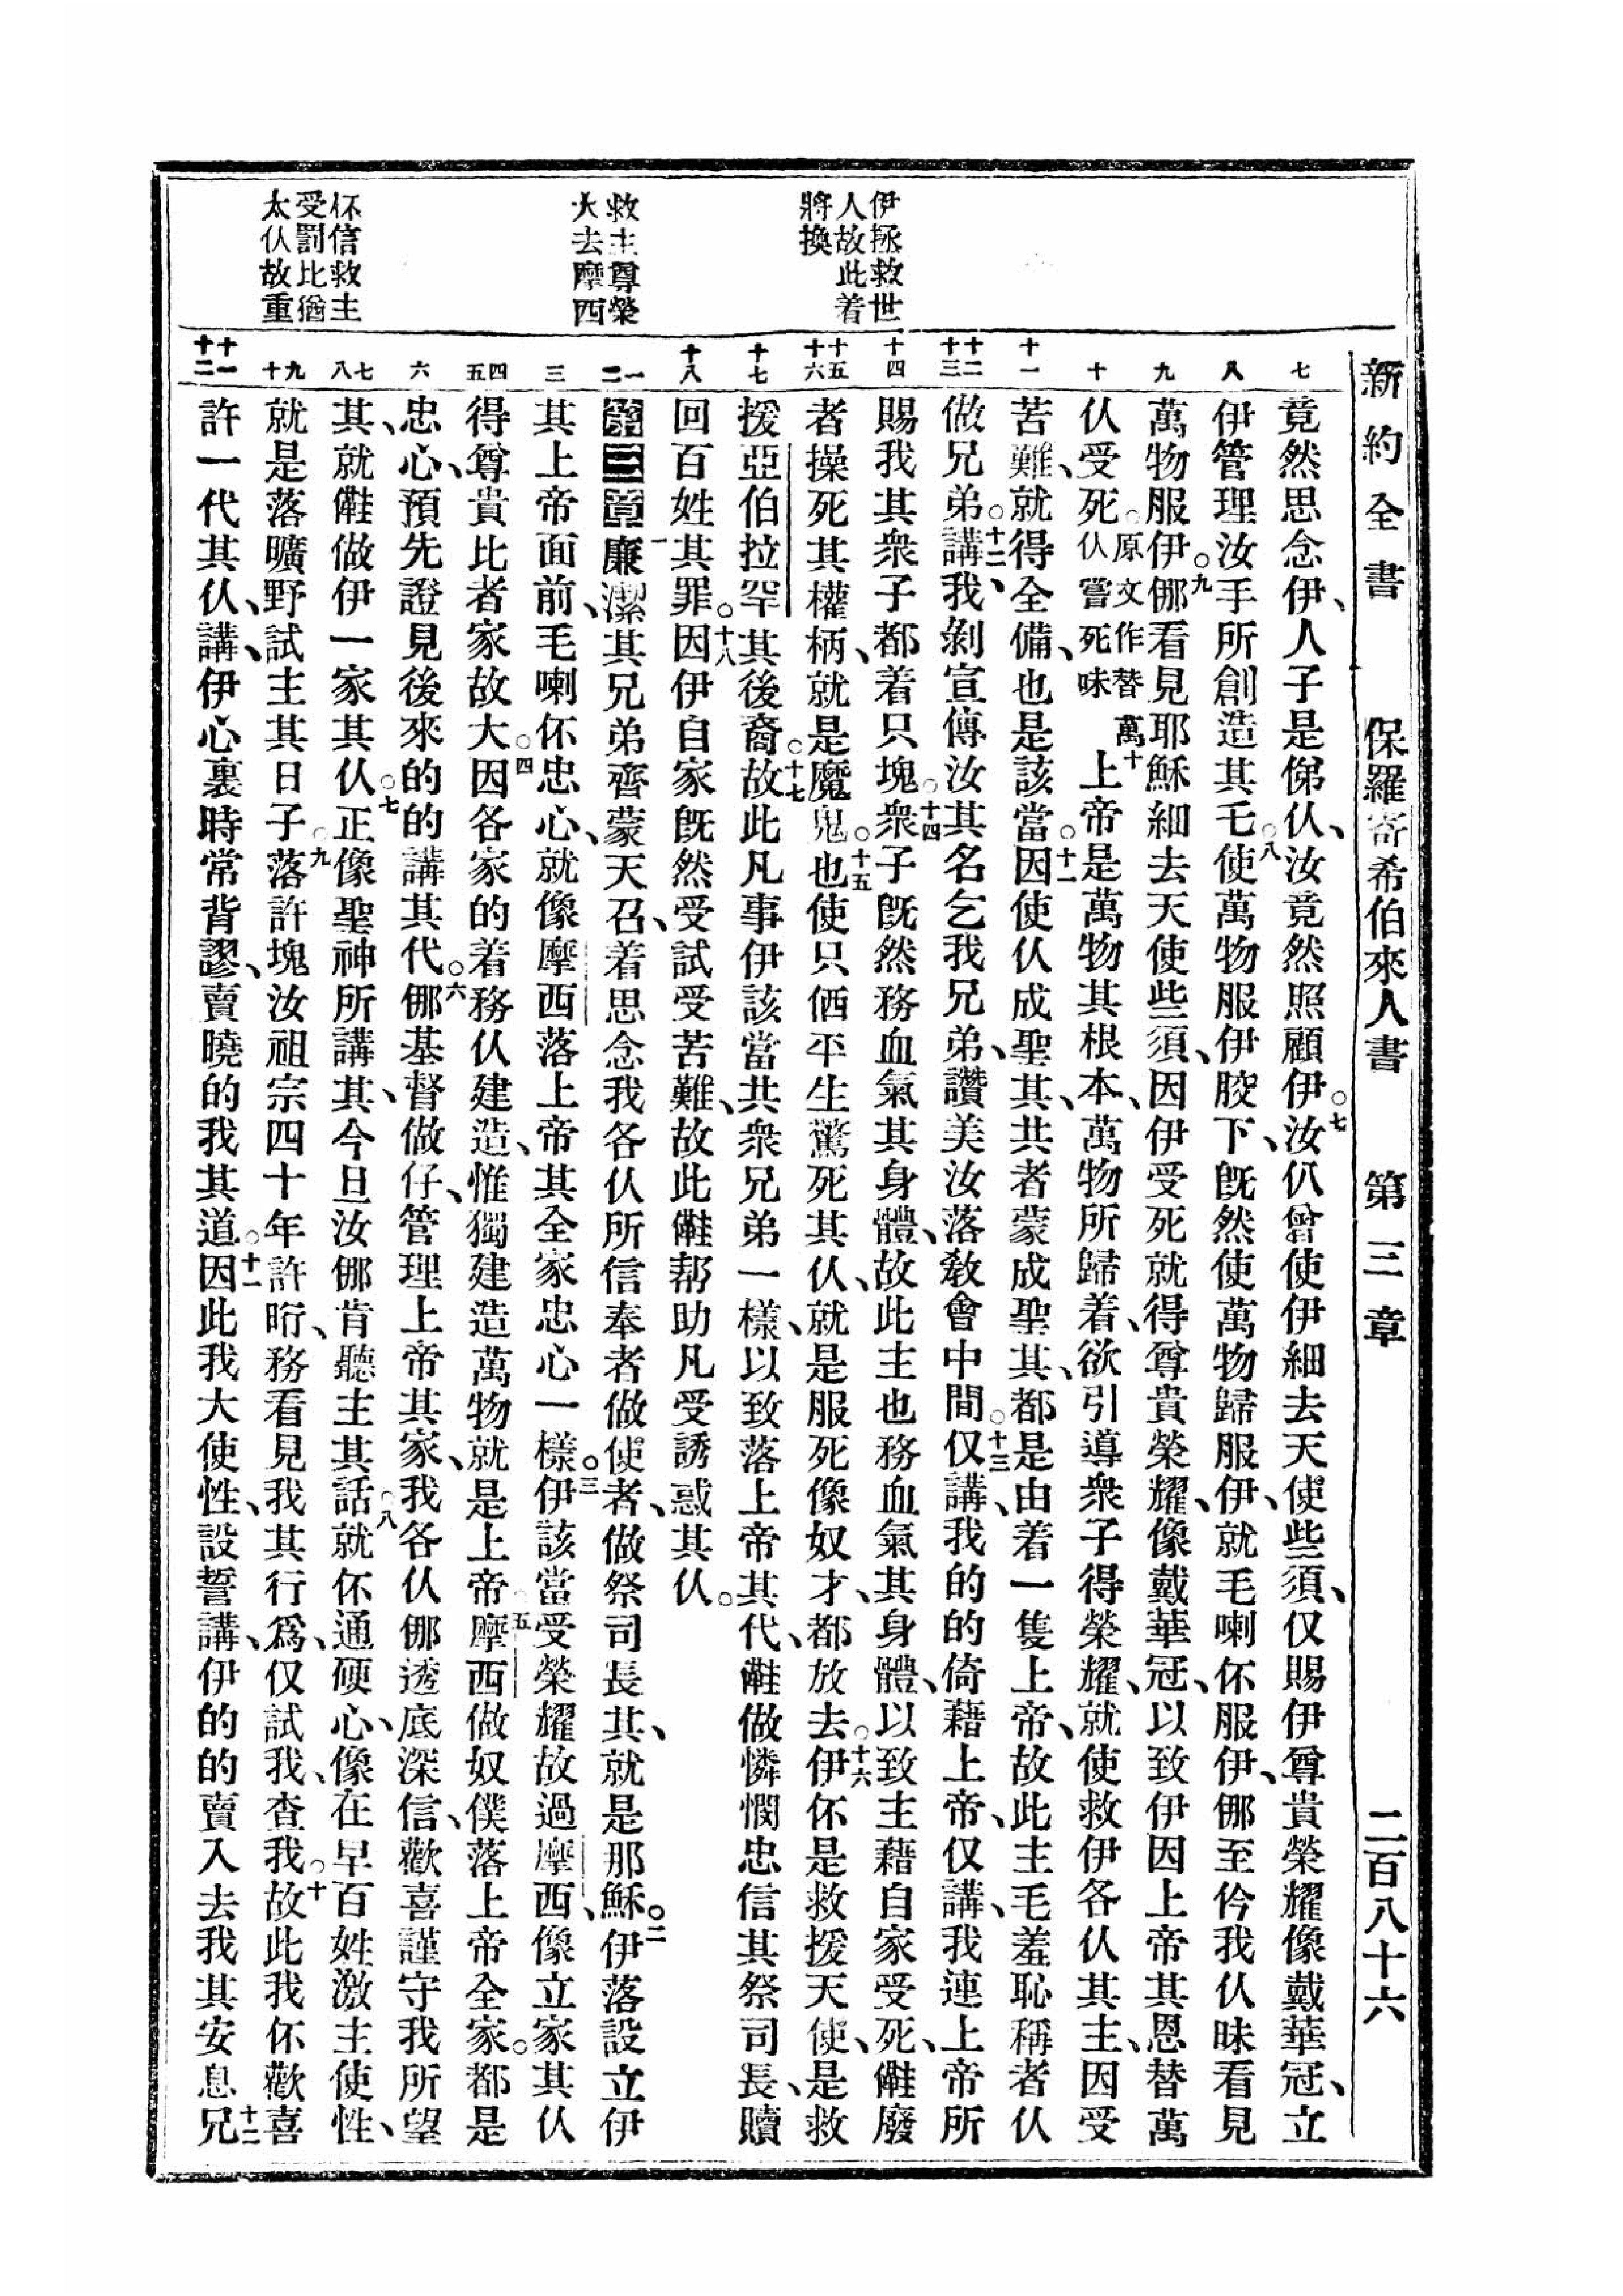 新約全書 保羅寄希伯來人書 第三章 二百八十六
伊拯救世
人故此着
將換
救主尊榮
大去摩西
伓信救主
受罰比猶
太仈故重
七
八
九
十
十一
十二 十三
十四
十五 十六
十七
十八
一 二
三
四 五
六
七 八
九 十
十一 十二
竟然思念伊、人子是俤仈、汝竟然照顧伊。七汝仈曾使伊細去天使些須、仅賜伊尊貴榮耀像戴華冠、立
伊管理汝手所創造其乇。八使萬物服伊骹下、旣然使萬物歸服伊、就毛喇伓服伊、𰁜至仱我仈昧看見
萬物服伊。九𰁜看見耶穌細去天使些須、因伊受死就得尊貴榮耀、像戴華冠、以致伊因上帝其恩替萬
仈受死。原文作替萬仈嘗死味 十上帝是萬物其根本、萬物所歸着、欲引導衆子得榮耀、就使救伊各仈其主、因受
苦難、就得全備、也是該當。十一因使仈成聖其、共者蒙成聖其、都是由着一隻上帝、故此主毛羞恥稱者仈
做兄弟。十二講、我剝宣傳汝其名乞我兄弟、讚美汝落敎會中間。十三仅講、我的的倚藉上帝、仅講、我連上帝所
賜我其衆子都着只塊。十四衆子旣然務血氣其身體、故此主也務血氣其身體、以致主藉自家受死、𫢗廢
者操死其權柄、就是魔鬼。十五也使只㐽平生驚死其仈、就是服死像奴才、都放去。十六伊伓是救援天使、是救
援亞伯拉罕其後裔。十七故此凡事伊該當共衆兄弟一樣、以致落上帝其代、𫢗做憐憫忠信其祭司長、贖
回百姓其罪。十八因伊自家旣然受試受苦難、故此𫢗帮助凡受誘惑其仈。
第三章 一廉潔其兄弟齊蒙天召、着思念我各仈所信奉者做使者、做祭司長其、就是耶穌。二伊落設立伊
其上帝面前、毛喇伓忠心、就像摩西落上帝其全家忠心一樣。三伊該當受榮耀故過摩西、像立家其仈
得尊貴比者家故大。四因各家的着務仈建造、惟獨建造萬物就是上帝。五摩西做奴僕落上帝全家。都是
忠心、預先證見後來的的講其代。六𰁜基督做仔、管理上帝其家、我各仈𰁜透底深信、歡喜謹守我所望
其、就𫢗做伊一家其仈。七正像聖神所講其、今旦汝𰁜肯聽主其話。八就伓通硬心、像在早百姓激主使性、
就是落曠野試主其日子。九落許塊汝祖宗四十年許昕、務看見我其行爲、仅試我、查我。十故此我伓歡喜
許一代其仈、講、伊心裏時常背謬、賣曉的我其道。十一因此我大使性、設誓講、伊的的賣入去我其安息。十二兄